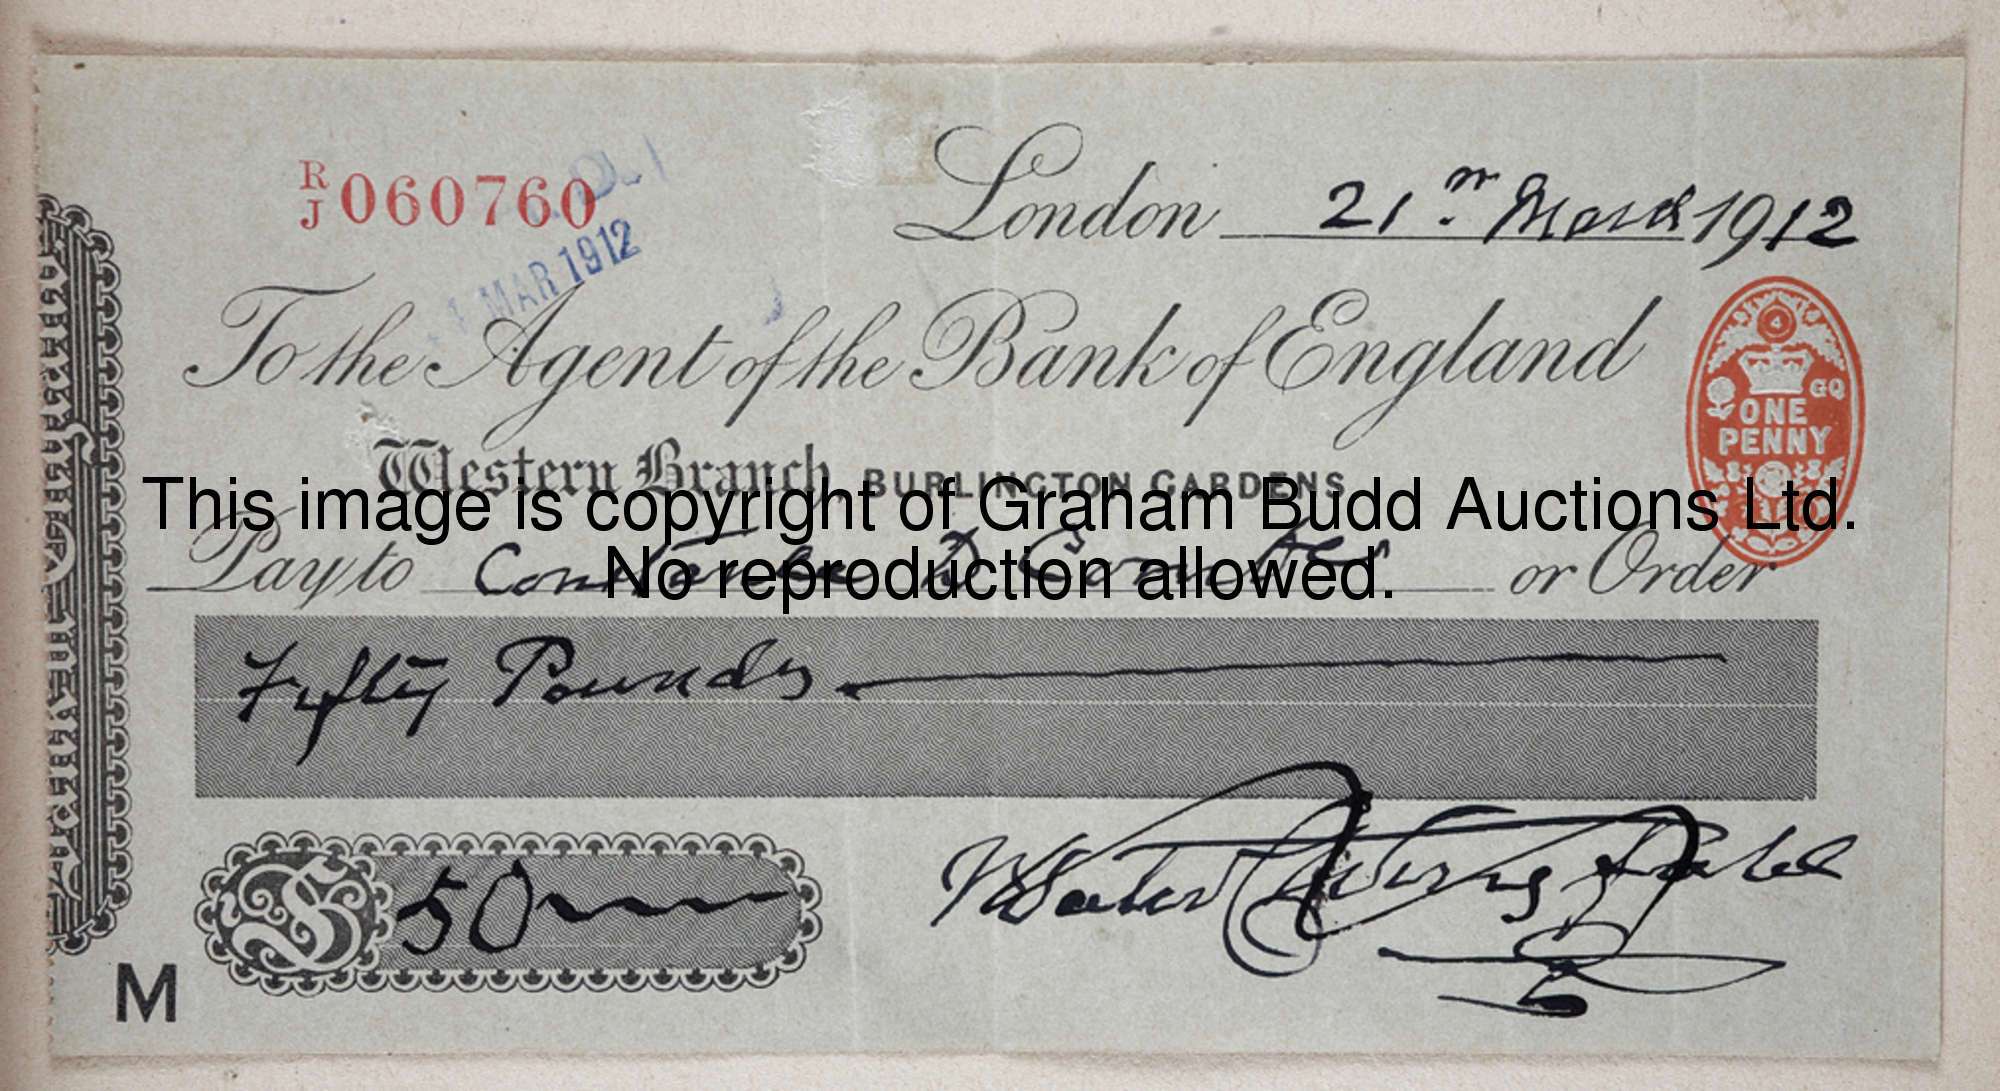 R/J 060760
MAR 1912
London 21st March 1912
To the Agent of the Bank of England
Western Branch BURLINGTON GARDENS
GQ
ONE
PENNY
This image is copyright of Graham Budd Auctions Ltd.
Pay to or Order
No reproduction allowed.
Fifty Pounds
£ 50
M